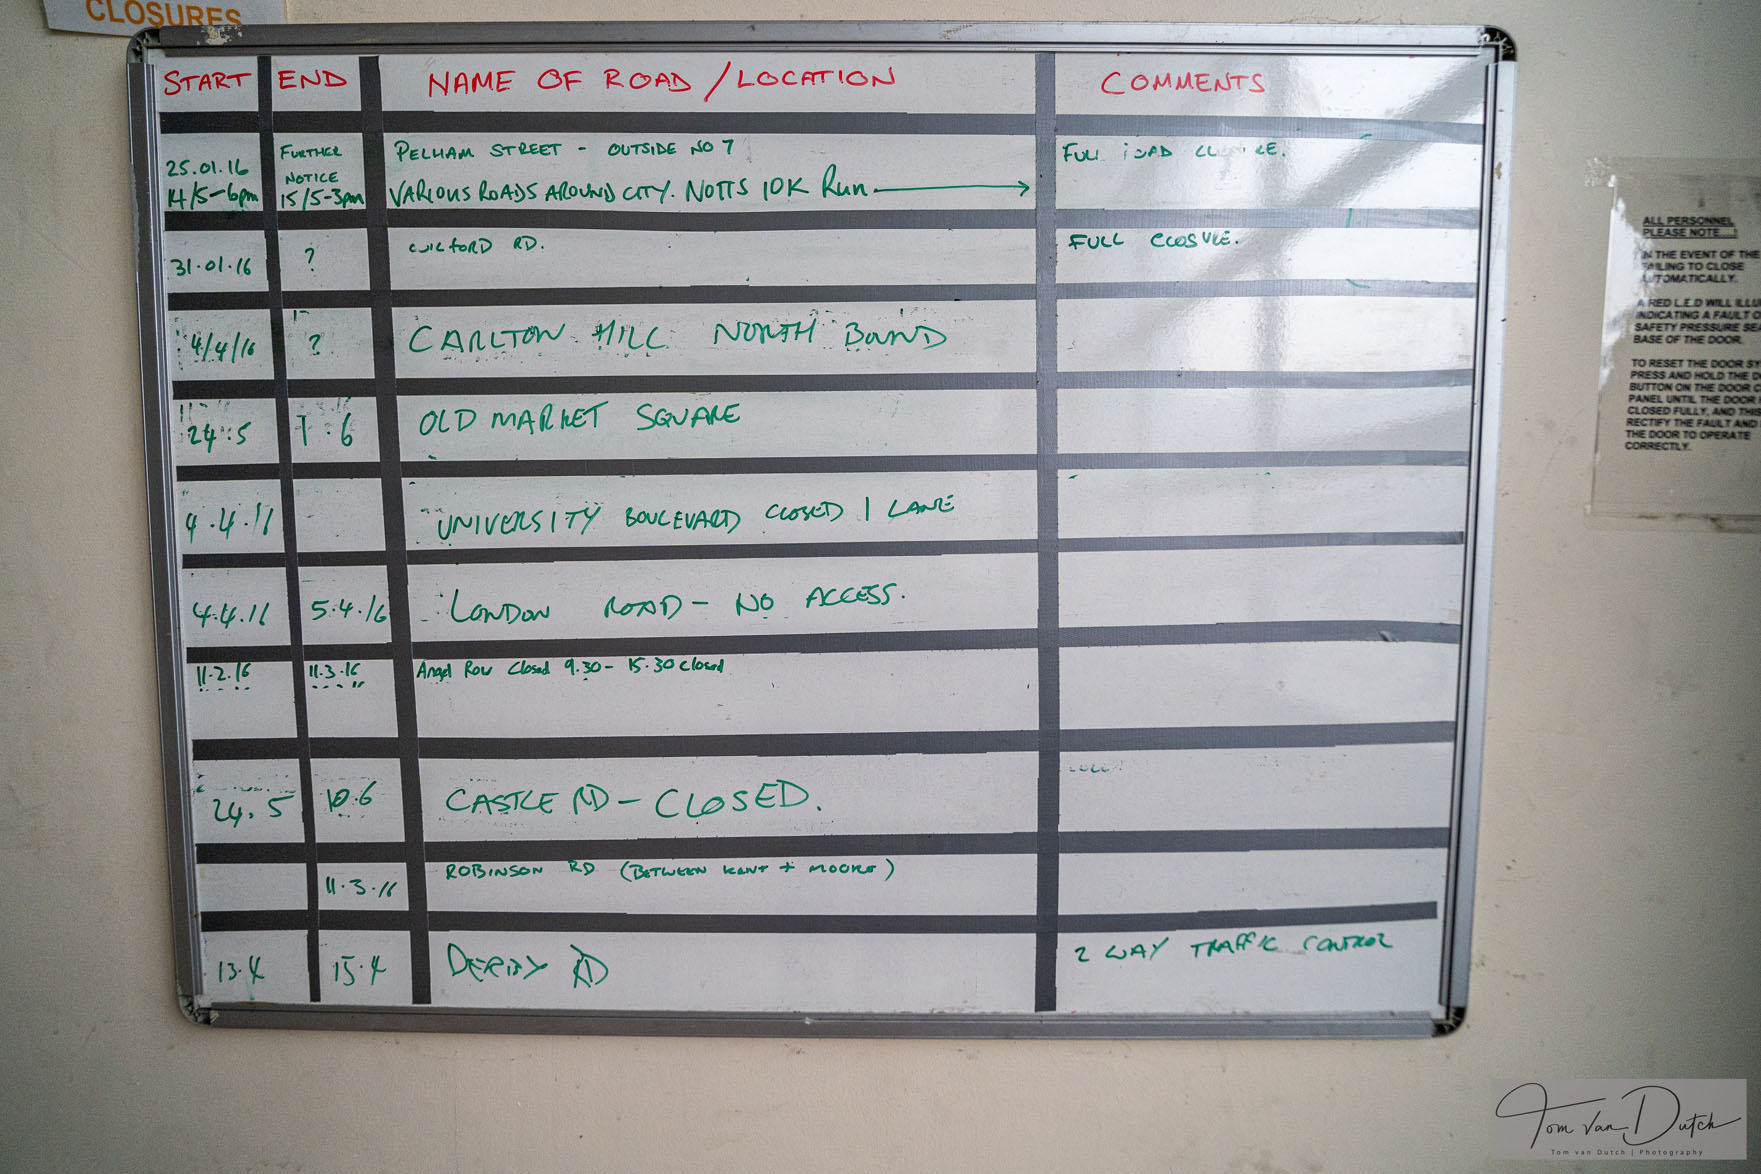 CLOSURES
START END NAME OF ROAD / LOCATION COMMENTS
25.01.16 FURTHER NOTICE PELHAM STREET - OUTSIDE NO 7 FULL ROAD CLOSURE.
14/5-6pm 15/5-3pm VARIOUS ROADS AROUND CITY. NOTTS 10K Run
31.01.16 ? RD. FULL CLOSURE.
4/4/16 ? CARLTON HILL NORTH BOUND
24.5 6 OLD MARKET SQUARE
4.4.11 UNIVERSITY BOULEVARD CLOSED 1 LANE
4.4.16 5.4.16 LONDON ROAD - NO ACCESS.
11.2.16 11.3.16 Angel Row Closed 9.30 - 15.30 closed
24.5 10.6 CASTLE RD - CLOSED.
11.3.16 ROBINSON RD (BETWEEN KENT + MOORE)
13.4 15.4 DERBY RD 2 WAY TRAFFIC CONTROL
ALL PERSONNEL
PLEASE NOTE
IN THE EVENT OF THE
FAILING TO CLOSE
AUTOMATICALLY.
A RED L.E.D WILL
INDICATING A FAULT
SAFETY PRESSURE
BASE OF THE DOOR.
TO RESET THE DOOR
PRESS AND HOLD THE
BUTTON ON THE DOOR
PANEL UNTIL THE DOOR
CLOSED FULLY, AND THIS
RECTIFY THE FAULT AND
THE DOOR TO OPERATE
CORRECTLY.
Tom van Dutch
Tom van Dutch | Photography